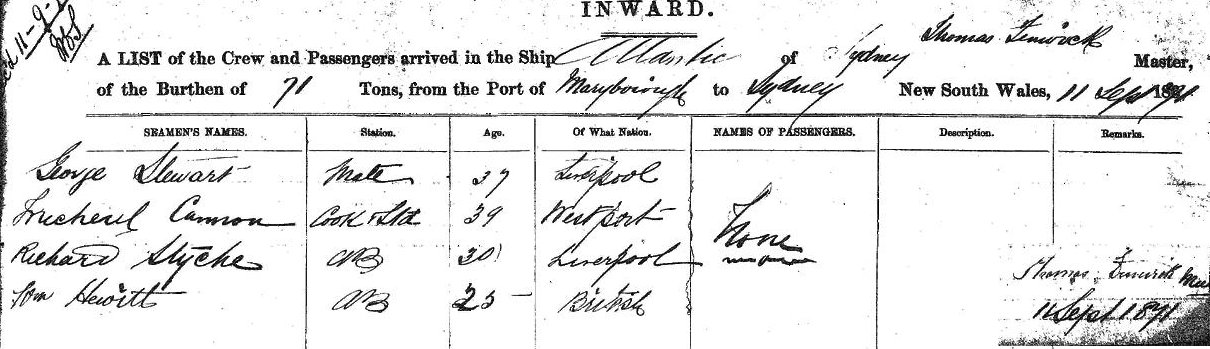 INWARD.
A LIST of the Crew and Passengers arrived in the Ship Atlantic of Sydney Thomas Fenwick Master,
of the Burthen of 71 Tons, from the Port of Maryborough to Sydney New South Wales, 11 Sept 1891
SEAMEN'S NAMES. Station. Age. Of What Nation. NAMES OF PASSENGERS. Description. Remarks.
George Stewart Mate 37 Liverpool
Cannon Cook & Std 39 Westport
None
Richard Styche AB 30 Liverpool
Thomas Fenwick
Wm Hewitt AB 25 British
11 Sept 1891